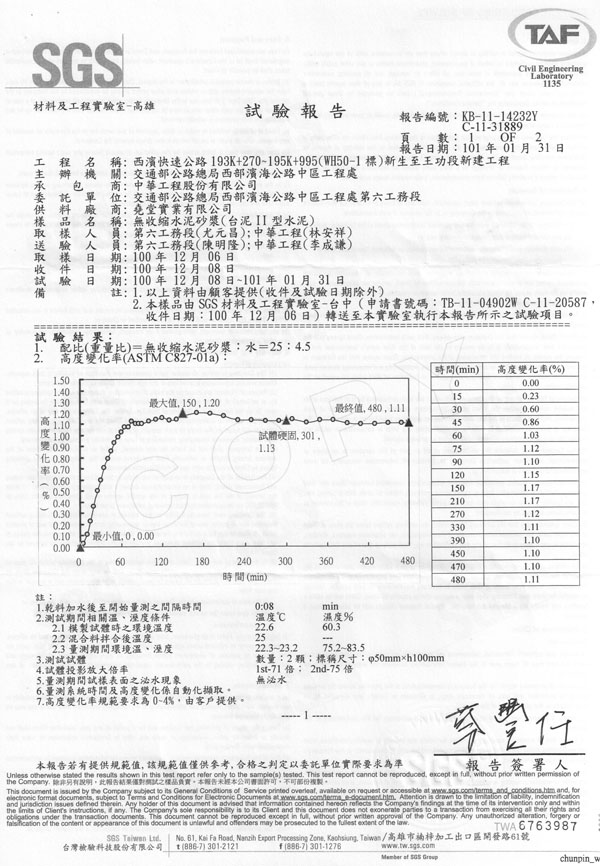 SGS
TAF
Civil Engineering
Laboratory
1135
材料及工程實驗室-高雄
試驗報告
報告編號：KB-11-14232Y
C-11-31889
頁 數：1 OF 2
報告日期：101 年 01 月 31 日
工程名稱：西濱快速公路 193K+270~195K+995(WH50-1 標)新生至王功段新建工程
主辦機關：交通部公路總局西部濱海公路中區工程處
承包商：中華工程股份有限公司
委託單位：交通部公路總局西部濱海公路中區工程處第六工務段
供料廠商：堯堂實業有限公司
樣品名稱：無收縮水泥砂漿(台泥 II 型水泥)
取樣人員：第六工務段(尤元昌);中華工程(林安祥)
送驗人員：第六工務段(陳明隆);中華工程(李成謙)
取樣日期：100 年 12 月 06 日
收件日期：100 年 12 月 08 日
試驗日期：100 年 12 月 08 日~101 年 01 月 31 日
備註：1.以上資料由顧客提供(收件及試驗日期除外)
2.本樣品由 SGS 材料及工程實驗室-台中 (申請書號碼：TB-11-04902W C-11-20587，
收件日期：100 年 12 月 06 日) 轉送至本實驗室執行本報告所示之試驗項目。
試驗結果：
1. 配比(重量比)=無收縮水泥砂漿：水=25：4.5
2. 高度變化率(ASTM C827-01a)：
高度變化率(%)
1.50
1.40
1.30
1.20
1.10
1.00
0.90
0.80
0.70
0.60
0.50
0.40
0.30
0.20
0.10
0.00
最大值, 150, 1.20
最終值, 480, 1.11
試體硬固, 301,
1.13
最小值, 0, 0.00
0 60 120 180 240 300 360 420 480
時間(min)
COPY
時間(min) 高度變化率(%)
0 0.00
15 0.23
30 0.60
45 0.86
60 1.03
75 1.12
90 1.10
120 1.15
150 1.17
210 1.17
270 1.12
330 1.11
390 1.10
450 1.10
470 1.10
480 1.11
註：
1.乾料加水後至開始量測之間隔時間 0:08 min
2.測試期間相關溫、溼度條件 溫度℃ 濕度%
2.1 模製試體時之環境溫度 22.6 60.3
2.2 混合料拌合後溫度 25 ---
2.3 量測期間環境溫、溼度 22.3~23.2 75.2~83.5
3.測試試體 數量：2 顆；標稱尺寸：φ50mm×h100mm
4.試體投影放大倍率 1st-71 倍； 2nd-75 倍
5.量測期間試樣表面之泌水現象 無泌水
6.量測系統時間及高度變化係自動化擷取。
7.高度變化率規範要求為 0~4%，由客戶提供。
----- 1 -----
本報告若有提供規範值,該規範值僅供參考,合格之判定以委託單位實際要求為準
報告簽署人
Unless otherwise stated the results shown in this test report refer only to the sample(s) tested. This test report cannot be reproduced, except in full, without prior written permission of
the Company. 除非另有說明，此報告結果僅對測試之樣品負責。本報告未經本公司書面許可，不可部份複製。
This document is issued by the Company subject to its General Conditions of Service printed overleaf, available on request or accessible at www.sgs.com/terms_and_conditions.htm and, for
electronic format documents, subject to Terms and Conditions for Electronic Documents at www.sgs.com/terms_e-document.htm. Attention is drawn to the limitation of liability, indemnification
and jurisdiction issues defined therein. Any holder of this document is advised that information contained hereon reflects the Company's findings at the time of its intervention only and within
the limits of Client's instructions, if any. The Company's sole responsibility is to its Client and this document does not exonerate parties to a transaction from exercising all their rights and
obligations under the transaction documents. This document cannot be reproduced except in full, without prior written approval of the Company. Any unauthorized alteration, forgery or
falsification of the content or appearance of this document is unlawful and offenders may be prosecuted to the fullest extent of the law.
TWA 6763987
SGS Taiwan Ltd. No. 61, Kai Fa Road, Nanzih Export Processing Zone, Kaohsiung, Taiwan /高雄市楠梓加工出口區開發路61號
台灣檢驗科技股份有限公司 t (886-7) 301-2121 f (886-7) 301-1376 www.tw.sgs.com
Member of SGS Group
chunpin_